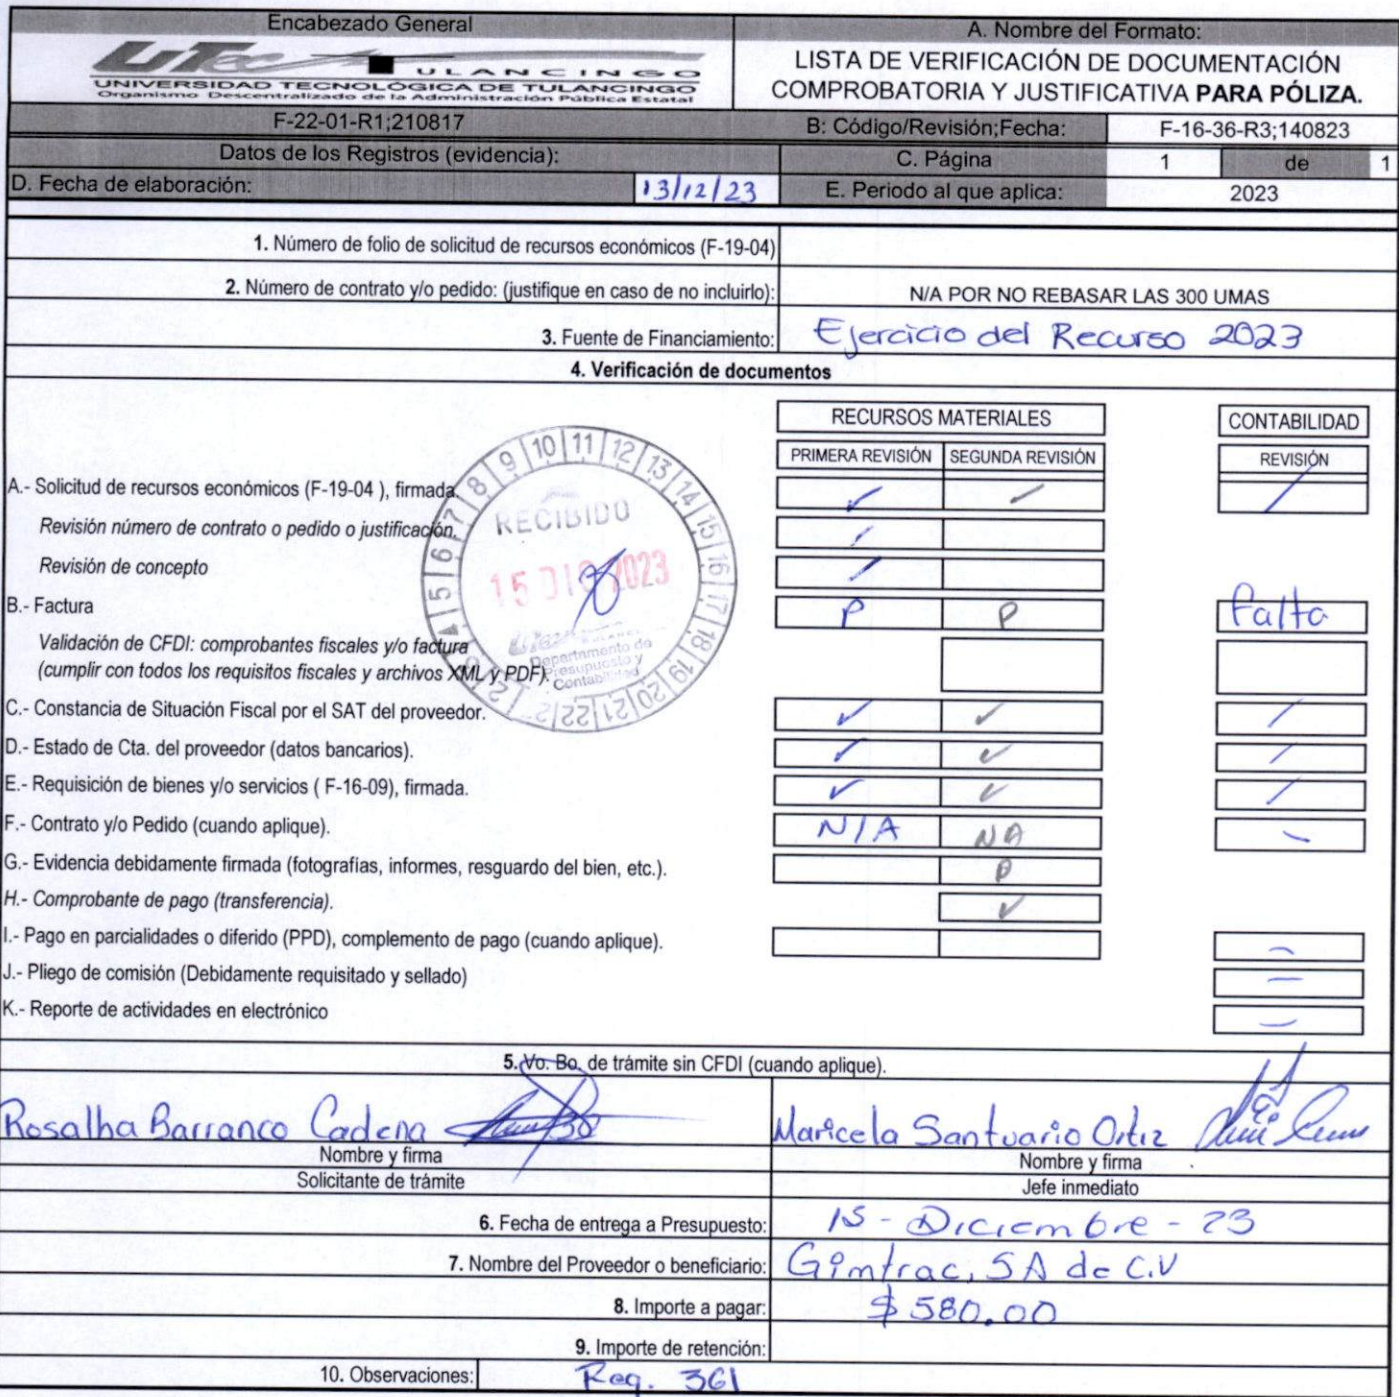 Encabezado General
A. Nombre del Formato:
UTec TULANCINGO
UNIVERSIDAD TECNOLÓGICA DE TULANCINGO
Organismo Descentralizado de la Administración Pública Estatal
LISTA DE VERIFICACIÓN DE DOCUMENTACIÓN
COMPROBATORIA Y JUSTIFICATIVA PARA PÓLIZA.
F-22-01-R1;210817
B: Código/Revisión;Fecha: F-16-36-R3;140823
Datos de los Registros (evidencia):
C. Página 1 de 1
D. Fecha de elaboración: 13/12/23
E. Periodo al que aplica: 2023
1. Número de folio de solicitud de recursos económicos (F-19-04)
2. Número de contrato y/o pedido: (justifique en caso de no incluirlo): N/A POR NO REBASAR LAS 300 UMAS
3. Fuente de Financiamiento: Ejercicio del Recurso 2023
4. Verificación de documentos
RECURSOS MATERIALES CONTABILIDAD
PRIMERA REVISIÓN SEGUNDA REVISIÓN REVISIÓN
A.- Solicitud de recursos económicos (F-19-04 ), firmada. ✓ ✓ /
Revisión número de contrato o pedido o justificación. ✓
Revisión de concepto ✓
B.- Factura P P Falta
Validación de CFDI: comprobantes fiscales y/o factura
(cumplir con todos los requisitos fiscales y archivos XML y PDF).
C.- Constancia de Situación Fiscal por el SAT del proveedor. ✓ ✓ /
D.- Estado de Cta. del proveedor (datos bancarios). ✓ ✓ /
E.- Requisición de bienes y/o servicios ( F-16-09), firmada. ✓ ✓ /
F.- Contrato y/o Pedido (cuando aplique). N/A NA -
G.- Evidencia debidamente firmada (fotografías, informes, resguardo del bien, etc.). P
H.- Comprobante de pago (transferencia). ✓
I.- Pago en parcialidades o diferido (PPD), complemento de pago (cuando aplique). -
J.- Pliego de comisión (Debidamente requisitado y sellado) -
K.- Reporte de actividades en electrónico -
RECIBIDO
15 DIC 2023
UTec
Departamento de
Presupuesto y
Contabilidad
4 5 6 7 8 9 10 11 12 13 14 15 16 17 18 19 20 21 22
5. Vo. Bo. de trámite sin CFDI (cuando aplique).
Rosalha Barranco Cadena
Maricela Santuario Ortiz
Nombre y firma
Nombre y firma
Solicitante de trámite
Jefe inmediato
6. Fecha de entrega a Presupuesto: 15 - Diciembre - 23
7. Nombre del Proveedor o beneficiario: Gimtrac, SA de C.V
8. Importe a pagar: $ 580.00
9. Importe de retención:
10. Observaciones: Req. 361